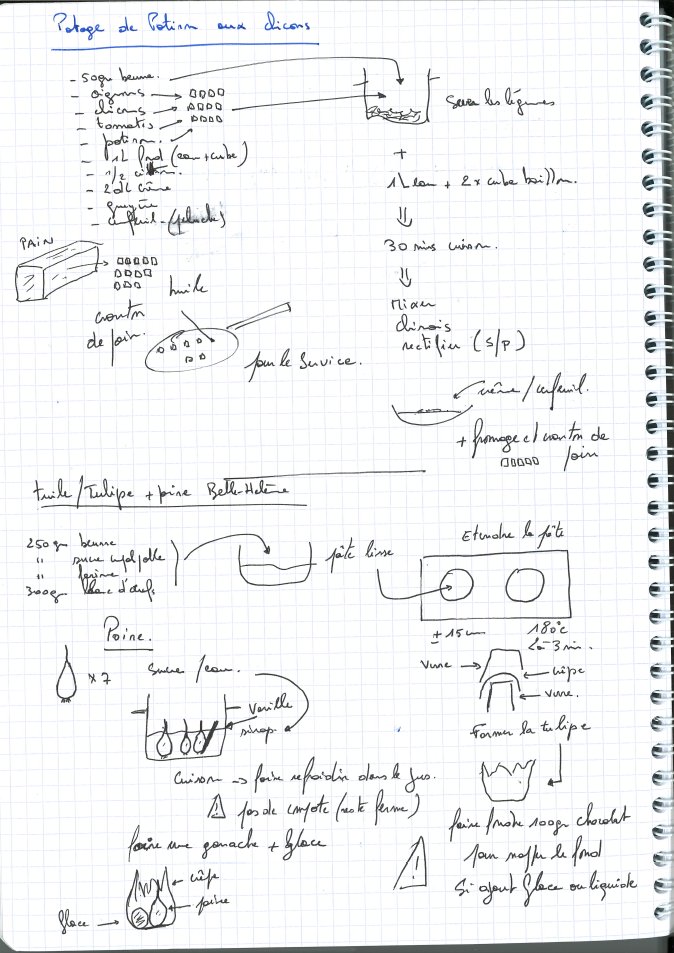 Potage de Potiron aux chicons
- 50gr beurre.
- oignons
- chicons
- tomates
- potiron.
- 1L fond (eau + cube)
- 1/2 citron.
- 2dL crème
- gruyère
- cerfeuil (pluche)
Suer les légumes
+
1L eau + 2 x cube bouillon.
30 mins cuisson.
Mixer
chinois
rectifier (S/P)
crème / cerfeuil.
+ fromage et crouton de
pain
PAIN
crouton
de pain.
huile
pour le Service.
tuile / Tulipe + poire Belle-Helène
250gr beurre
" sucre
" farine
300gr blanc d'oeufs
pâte lisse
Etendre la pâte
± 15cm
180°c
2 à 3 min.
Poire.
x 7
Sucre / eau.
Vanille
sirop.
Verre
crêpe
verre.
Former la tulipe
Cuisson → faire refroidir dans le jus.
! pas de compote (reste ferme)
faire une ganache + glace
crêpe
poire
glace
faire fondre 100gr chocolat
pour napper le fond
! Si ajout glace ou liquide